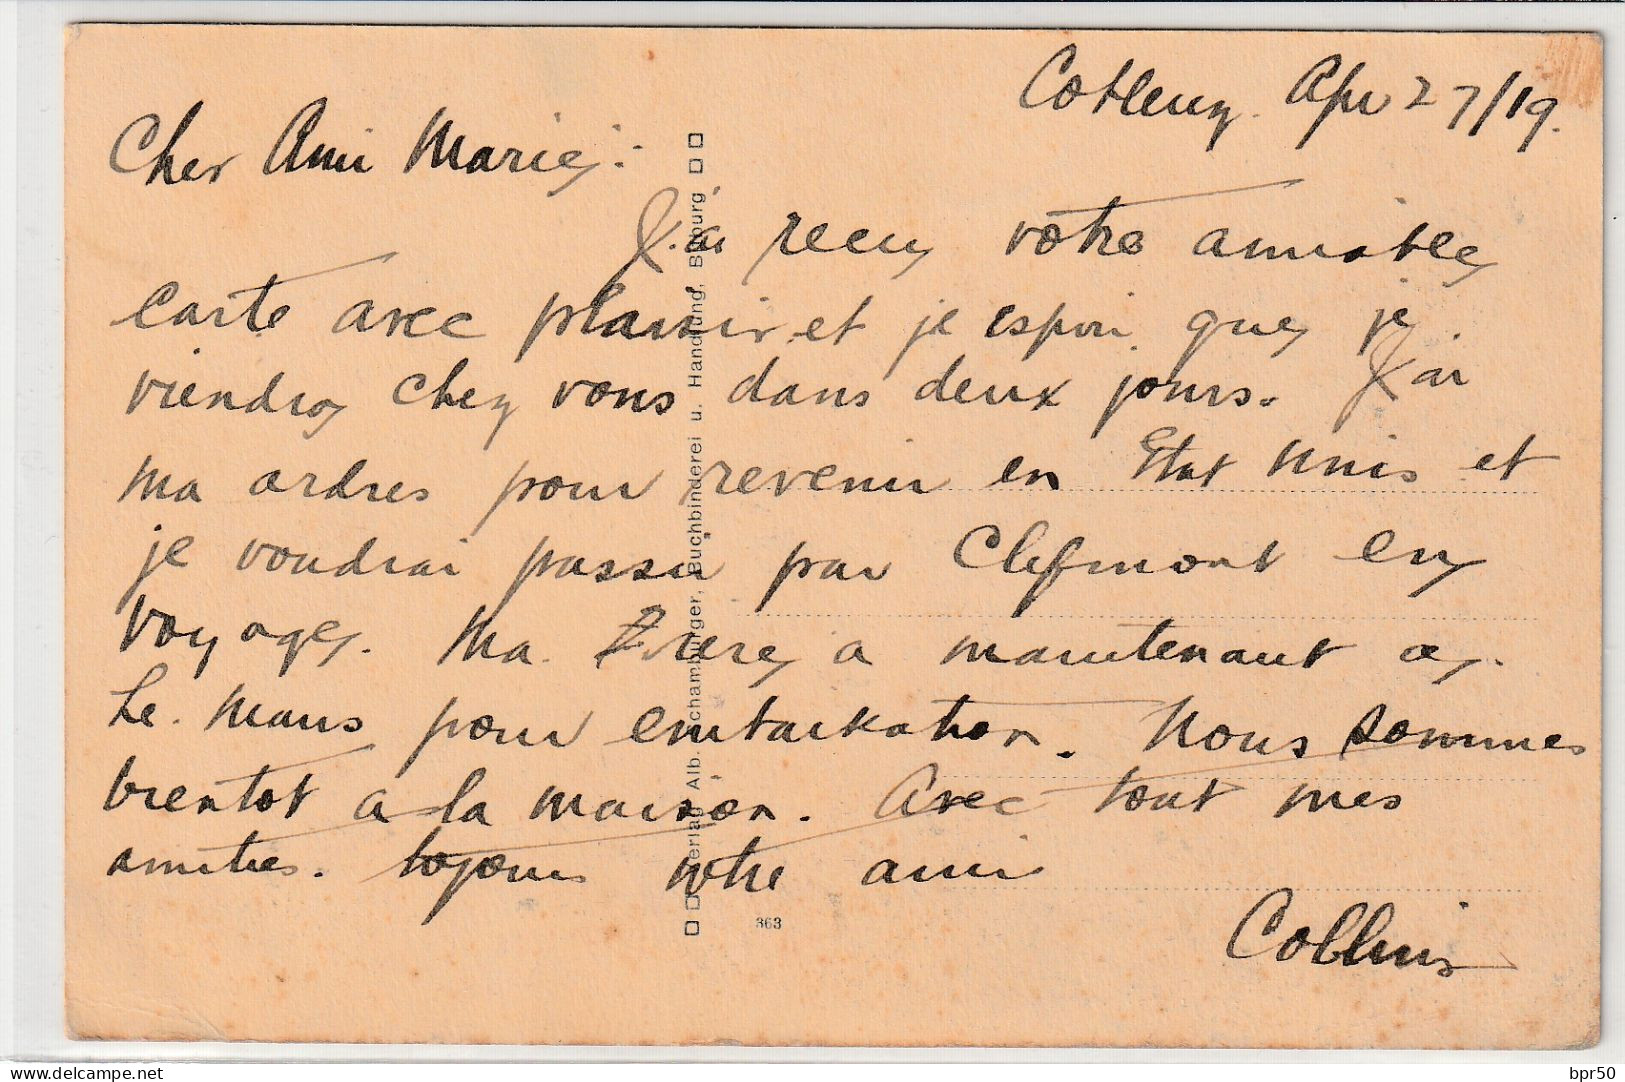 Coblenz. Apr 27/19.
Cher Ami Marie:
J'ai recu vôtre amiable
carte avec plaisir et je espoir que je
viendra chez vous dans deux jours. J'ai
ma ordres pour revenir en Etat Unis et
je voudrai passer par Clefmont en
voyage. Ma Frere a maintenant a
Le Mans pour embarkation. Nous sommes
bientot a la maison. Avec tout mes
amities. tojours votre ami
Collins
Verlag Alb. Schamburger, Buchbinderei u. Handlung, Bitburg
363
delcampe.net
bpr50